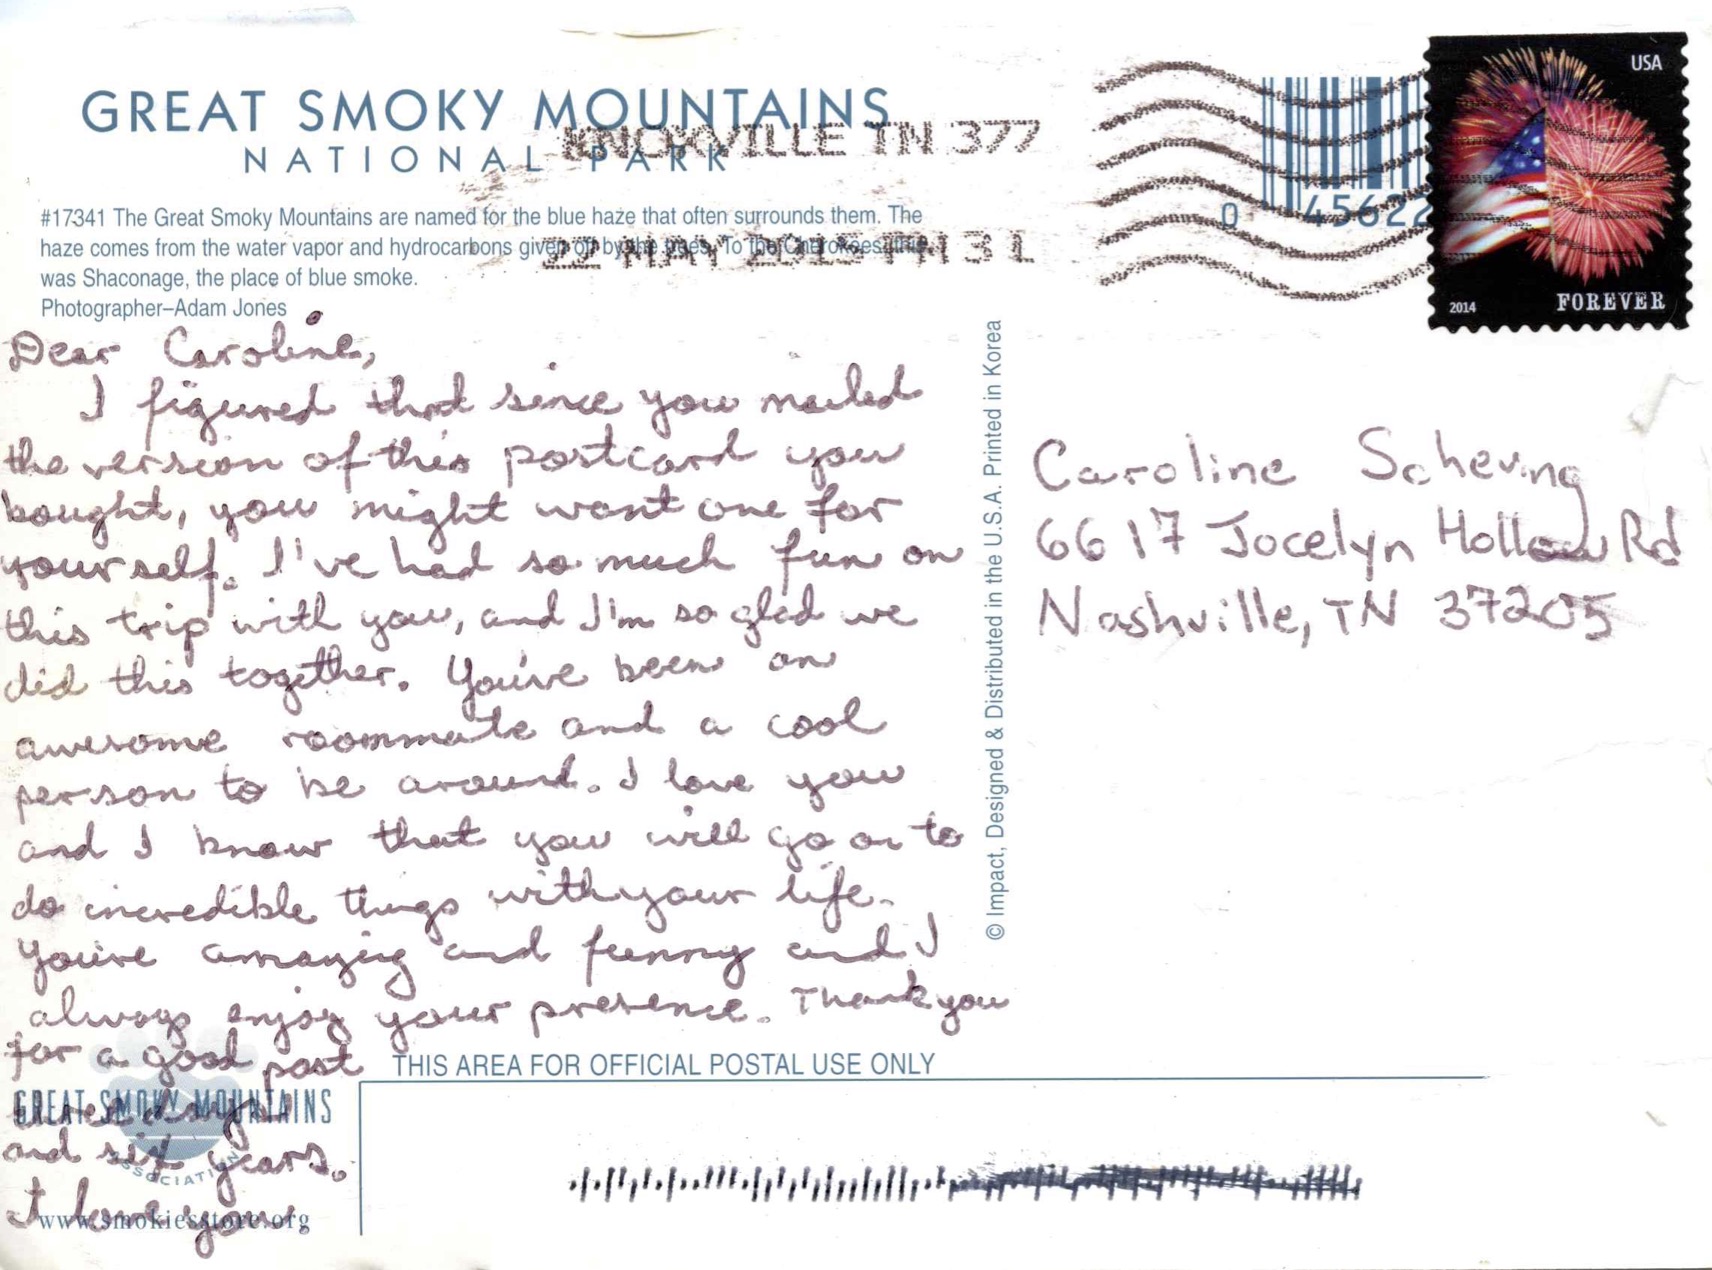 GREAT SMOKY MOUNTAINS
NATIONAL PARK
KNOXVILLE TN 377
22 MAY 2015 PM 3 L
#17341 The Great Smoky Mountains are named for the blue haze that often surrounds them. The
haze comes from the water vapor and hydrocarbons given off by the trees. To the Cherokees, this
was Shaconage, the place of blue smoke.
Photographer–Adam Jones
0 45622
USA
2014 FOREVER
Dear Caroline,
I figured that since you mailed
the version of this postcard you
bought, you might want one for
yourself. I've had so much fun on
this trip with you, and I'm so glad we
did this together. You've been an
awesome roommate and a cool
person to be around. I love you
and I know that you will go on to
do incredible things with your life.
You're amazing and funny and I
always enjoy your presence. Thank you
for a good past
three days
and six years.
I love you
GREAT SMOKY MOUNTAINS
ASSOCIATION
www.smokiesstore.org
© Impact, Designed & Distributed in the U.S.A. Printed in Korea
Caroline Scheving
6617 Jocelyn Hollow Rd
Nashville, TN 37205
THIS AREA FOR OFFICIAL POSTAL USE ONLY